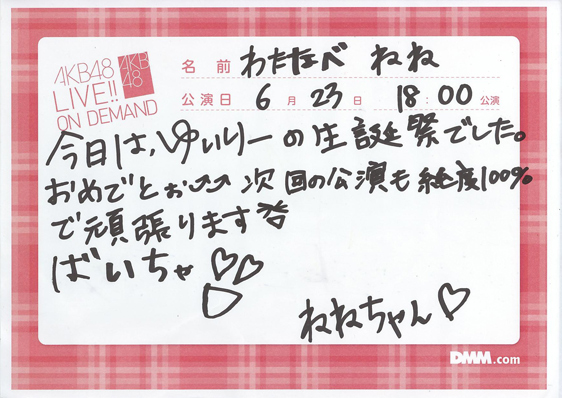 AKB48
LIVE!!
ON DEMAND
AKB
48
名前 わたなべ ねね
公演日 6月23日 18:00公演
今日は、ゆいりーの生誕祭でした。
おめでとぉ〜〜 次回の公演も純度100%
で頑張ります
ばいちゃ♡♡
♡
ねねちゃん♡
DMM.com